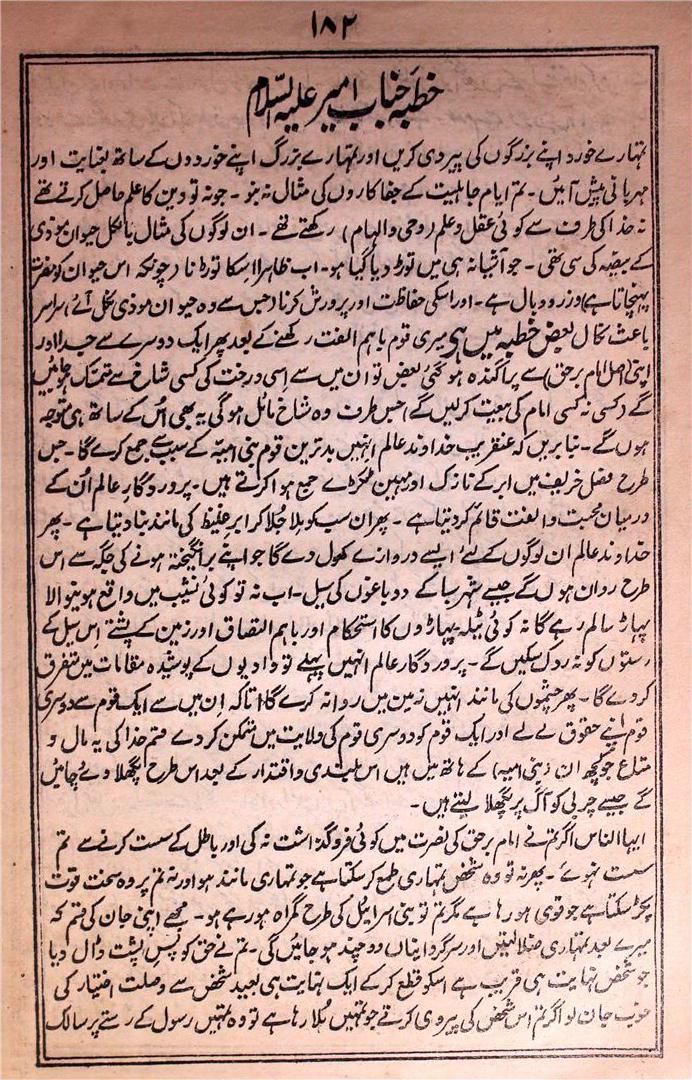 ۱۸۲
خطبہ جناب امیر علیہ السّلام
تمہارے خورد اپنے بزرگوں کی پیروی کریں اور تمہارے بزرگ اپنے خوردوں کے ساتھ بغایت اور
مہربانی پیش آئیں۔ تم ایام جاہلیت کے جفاکاروں کی مثال نہ بنو۔ جو نہ تو دین کا علم حاصل کرتے تھے
نہ خدا کی طرف سے کوئی عقل و علم (وحی و الہام) رکھتے تھے۔ ان لوگوں کی مثال بالکل حیوان موذی
کے بیضہ کی سی تھی۔ جو آشیانہ ہی میں توڑ دیا گیا ہو۔ اب ظاہرا اسکا توڑنا (چونکہ اس حیوان کو مضرت
پہنچاتا ہے) وزر و وبال ہے۔ اور اسکی حفاظت اور پرورش کرنا (جس سے وہ حیوان موذی نکل آئے) سراسر
باعث نکال بعض خطبہ میں ہی میری قوم باہم الفت رکھنے کے بعد پھر ایک دوسرے سے جدا اور
اپنی (اصل امام برحق) سے پراگندہ ہو گئی بعض تو ان میں سے اسی درخت کی کسی شاخ سے تمسک ہو جائیں
گے (کسی نہ کسی امام کی بیعت کر لیں گے) جس طرف وہ شاخ مائل ہوگی یہ بھی اُس کے ساتھ ہی متوجہ
ہوں گے۔ بنا بریں کہ عنقریب خداوند عالم انہیں بدترین قوم بنی امیہ کے سبب سے جمع کرے گا۔ جس
طرح فصل خریف میں ابر کے نازک اور مہین ٹکڑے جمع ہوا کرتے ہیں۔ پروردگار عالم اُن کے
درمیان محبت و الفت قائم کر دیتا ہے۔ پھر ان سب کو ہلا جلا کر ابر غلیظ کی مانند بنا دیتا ہے۔ پھر
خداوند عالم ان لوگوں کے لئے ایسے دروازے کھول دے گا جو اپنے برانگیختہ ہونے کی جگہ سے اس
طرح رواں ہوں گے جیسے شہر سبا کے دو باغوں کی سیل۔ اب نہ تو کوئی نشیب میں واقع ہونیوالا
پہاڑ سالم رہے گا نہ کوئی ٹیلہ پہاڑوں کا استحکام اور باہم التصاق اور زمین کے پشتے اِس سیل کے
رستوں کو نہ روک سکیں گے۔ پروردگار عالم انہیں پہلے تو وادیوں کے پوشیدہ مقامات میں متفرق
کر دے گا۔ پھر چشموں کی مانند انہیں زمین میں روانہ کرے گا۔ تاکہ اِن میں سے ایک قوم سے دوسری
قوم اپنے حقوق لے لے اور ایک قوم کو دوسری قوم کی ولایت میں متمکن کر دے قسم خدا کی یہ مال و
متاع جو کچھ ان (بنی امیہ) کے ہاتھ میں ہیں اس بلندی و اقتدار کے بعد اس طرح پگھلا دیے جائیں
گے جیسے چربی کو آگ پر پگھلا لیتے ہیں۔
ایہا الناس اگر تم نے امام برحق کی نصرت میں کوئی فروگذاشت نہ کی اور باطل کے سست کرنے سے تم
سست نہوئے۔ پھر نہ تو وہ شخص تمہاری طمع کر سکتا ہے جو تمہاری مانند ہو اور نہ تم پر وہ سخت قوت
پکڑ سکتا ہے جو قوی ہو رہا ہے مگر تم تو بنی اسرائیل کی طرح گمراہ ہو رہے ہو۔ مجھے اپنی جان کی قسم کہ
میرے بعد تمہاری ضلالتیں اور سرگردانیاں دو چند ہو جائیں گی۔ تم نے حق کو پس پشت ڈال دیا
جو شخص نہایت ہی قریب ہے اسکو قطع کر کے ایک نہایت ہی بعید شخص سے وصلت اختیار کی
خوب جان لو اگر تم اس شخص کی پیروی کرتے جو تمہیں بلا رہا ہے تو وہ تمہیں رسول کے رستے پر سالک